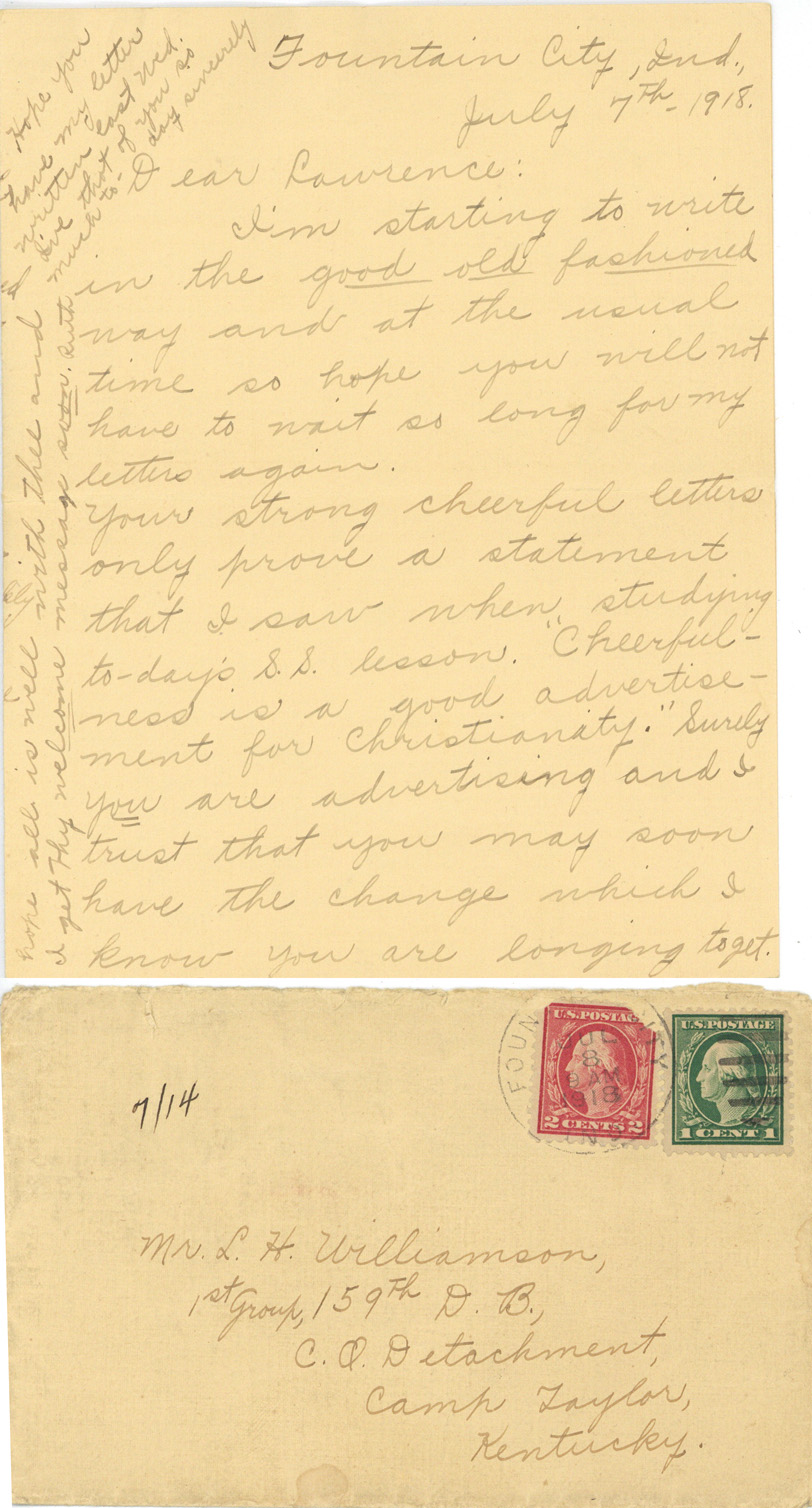 Fountain City, Ind.,
July 7th - 1918.
Dear Lawrence:
I'm starting to write
in the good old fashioned
way and at the usual
time so hope you will not
have to wait so long for my
letters again.
Your strong cheerful letters
only prove a statement
that I saw when studying
to-day's S.S. lesson. "Cheerful-
ness is a good advertise-
ment for Christianaty." Surely
you are advertising and I
trust that you may soon
have the change which I
know you are longing to get.
hope all is well with thee and
I get thy welcome message soon. Ruth
Hope you
have my letter
written last Wed.
of you so
much to-
day sincerely
FOUN CITY
JUL
8
9 AM
1918
IND
U.S. POSTAGE
2 CENTS 2
U.S. POSTAGE
1 CENT 1
7/14
Mr. L. H. Williamson,
1st Group, 159th D. B.,
C. O. Detachment,
Camp Taylor,
Kentucky.